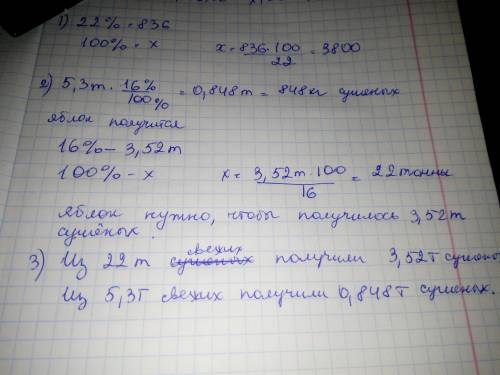 1) 22% = 836
100% = x x = 836·100 / 22 = 3800
2) 5,3т · 16% / 100% = 0,848т = 848кг сушеных
яблок получится
16% – 3,52т
100% – x x = 3,52т·100 / 16 = 22 тонны
яблок нужно, чтобы получилось 3,52т
сушёных.
3) Из 22т свежих получили 3,52т
Из 5,3т свежих получили 0,848т сушеных.